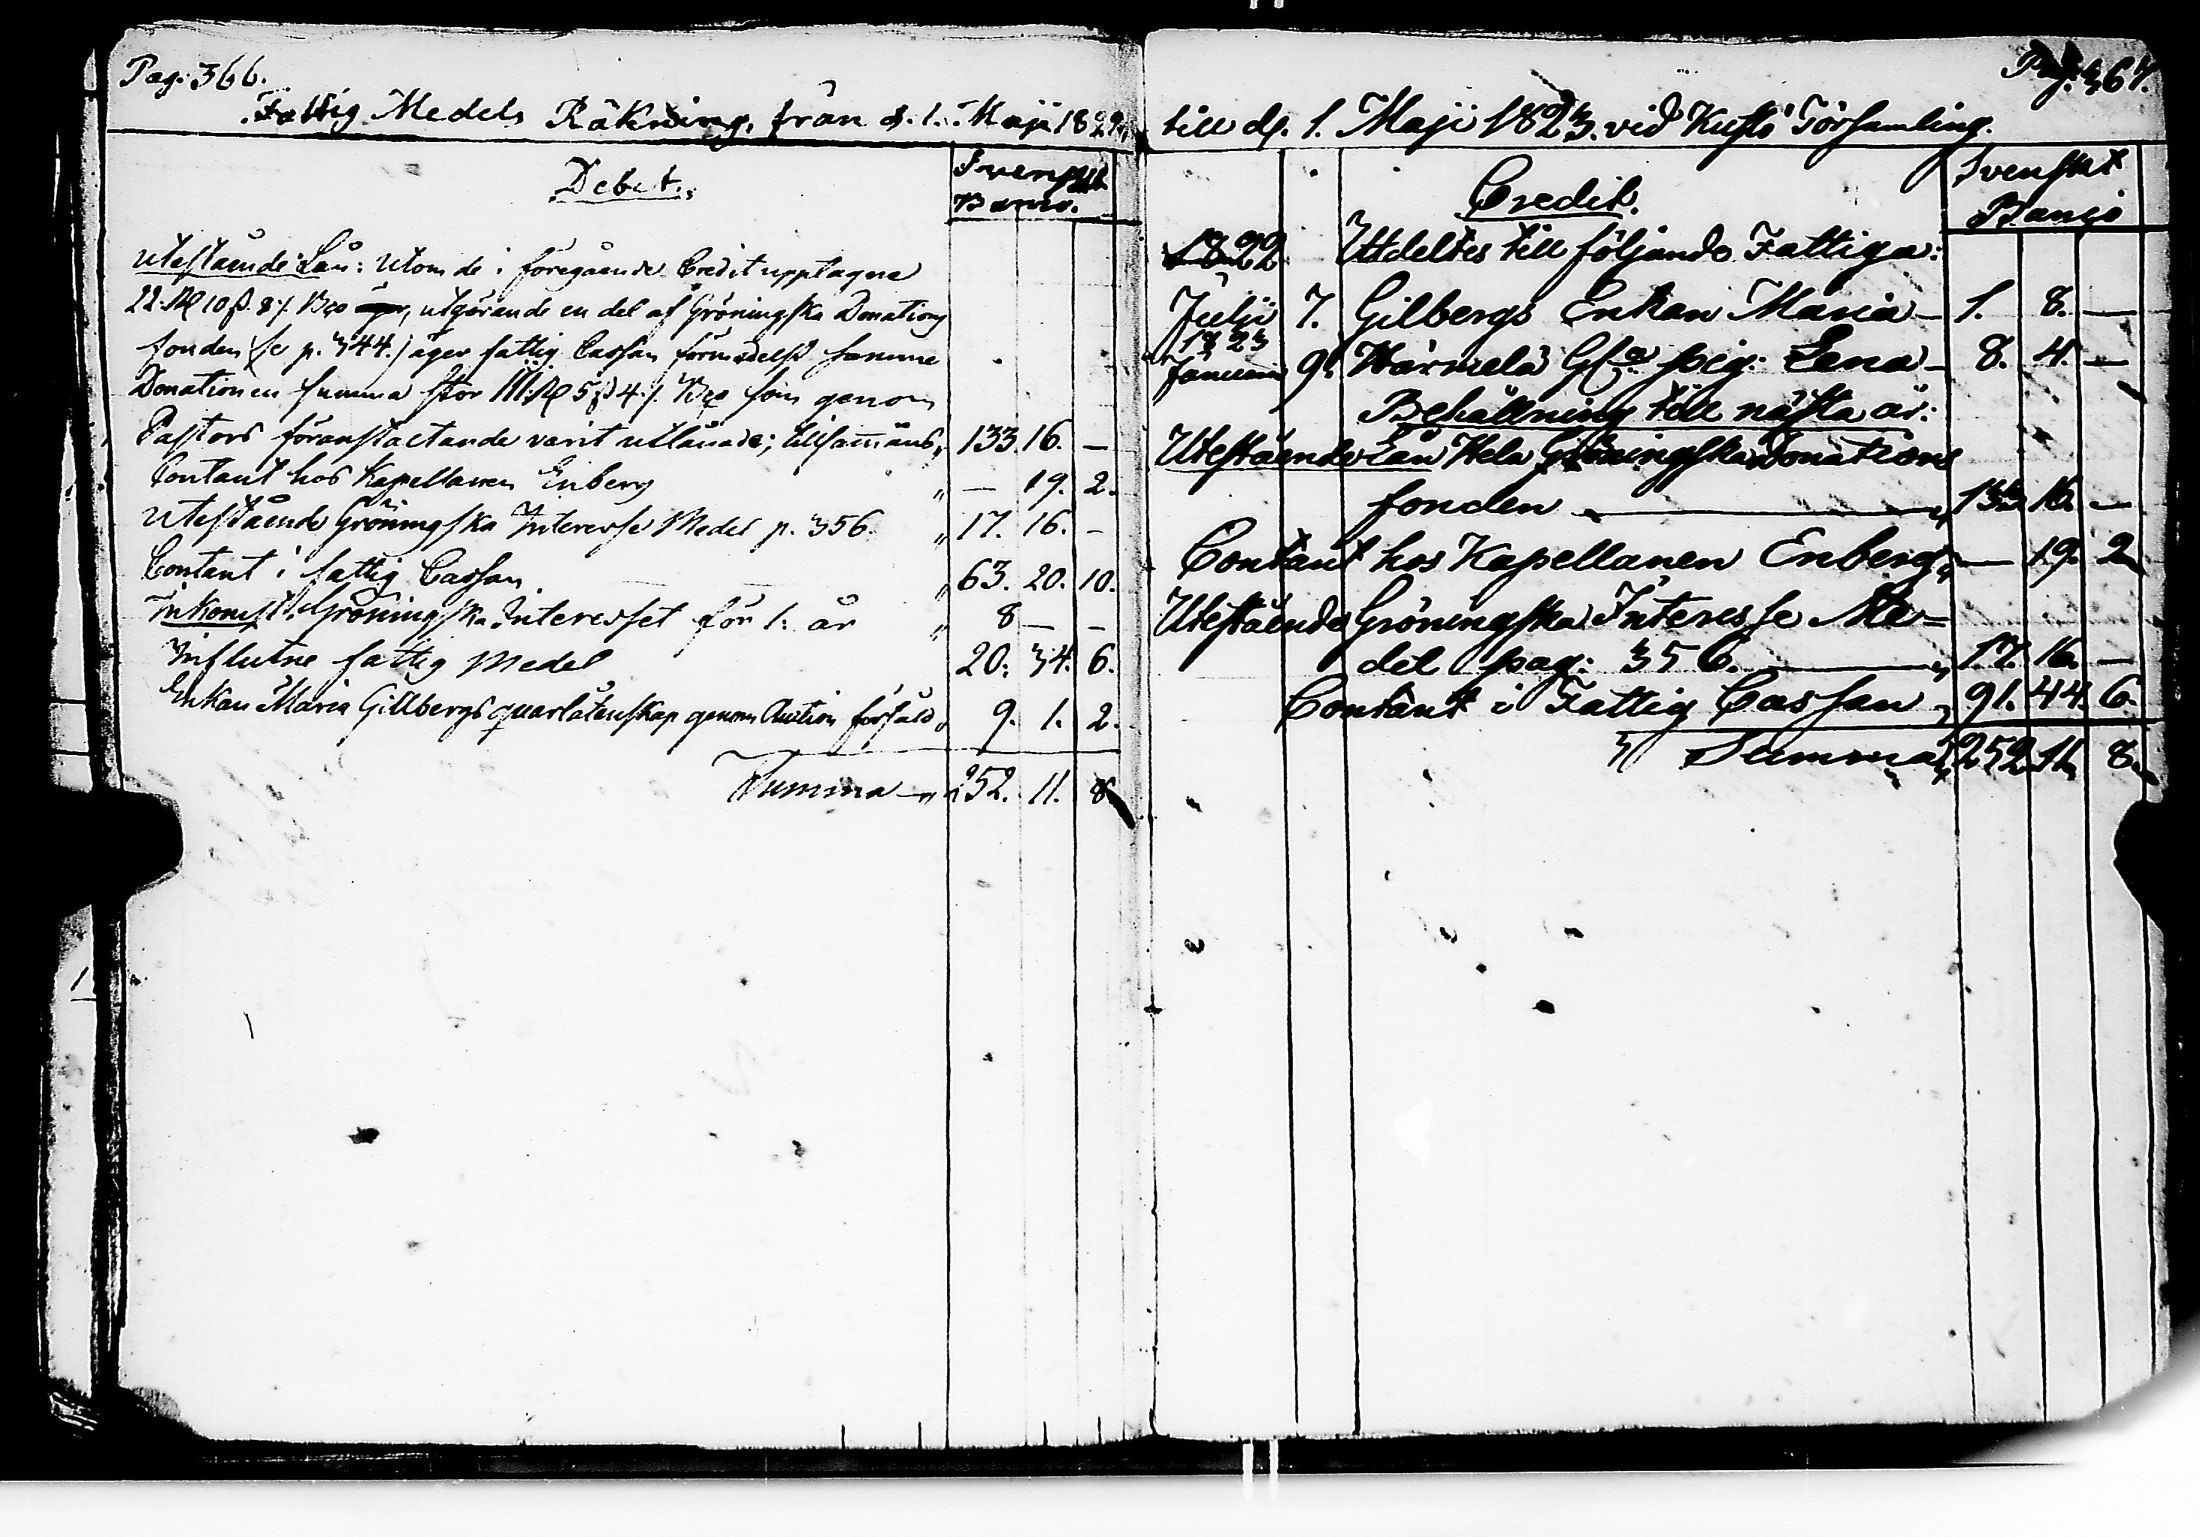 Pag: 366.
Fattig Medels Räkning, från d. 1. Maji 1822,
Debet.
Svenskt
Banco.
Utestående Lån: utom de i föregående Credit upptagne
22. Rd 10 ß. 8 /. Bco utgörande en del af Gröningska Donations
fonden (se p. 344.) äger fattig Cassan förmedelst samme
Donationen summa stor 111. Rd 5 ß 4 /. Bco som genom
Pastors föranstaltande varit utlånade; tillsammans, 133. 16. —
Contant hos Kapellanen Enberg " — 19. 2.
Utestående Gröningska Interesse Medel p. 356. " 17. 16. -
Contant i fattig Cassan " 63. 20. 10.
Inkomst: Gröningska Interesset för 1: år " 8 — -
Influtne fattig Medel 20: 34. 6.
Enkan Maria Gillbergs quarlåtenskap genom Auction försåld " 9. 1. 2.
Summa — " 252. 11. 8
Pag. 367.
till d. 1. Maji 1823. vid Kustö Församling.
Credit.
Svenskt
Banco
1822 Utdeltes till följande Fattiga:
Julii 7. Gilbergs Enkan Maria — 1. 8. —
1823
Januarii 9. Wärmelä pig: Lena — 8. 4. —
Behållning till nästa år:
Utestående Lån Hela Gröningska Donations
fonden — " 133. 16. —
Contant hos Kapellanen Enberg " — 19. 2
Utestående Gröningska Interesse Me-
del pag: 356. — " 17. 16. —
Contant i Fattig Cassan " 91. 44. 6.
Summa 252. 11. 8.